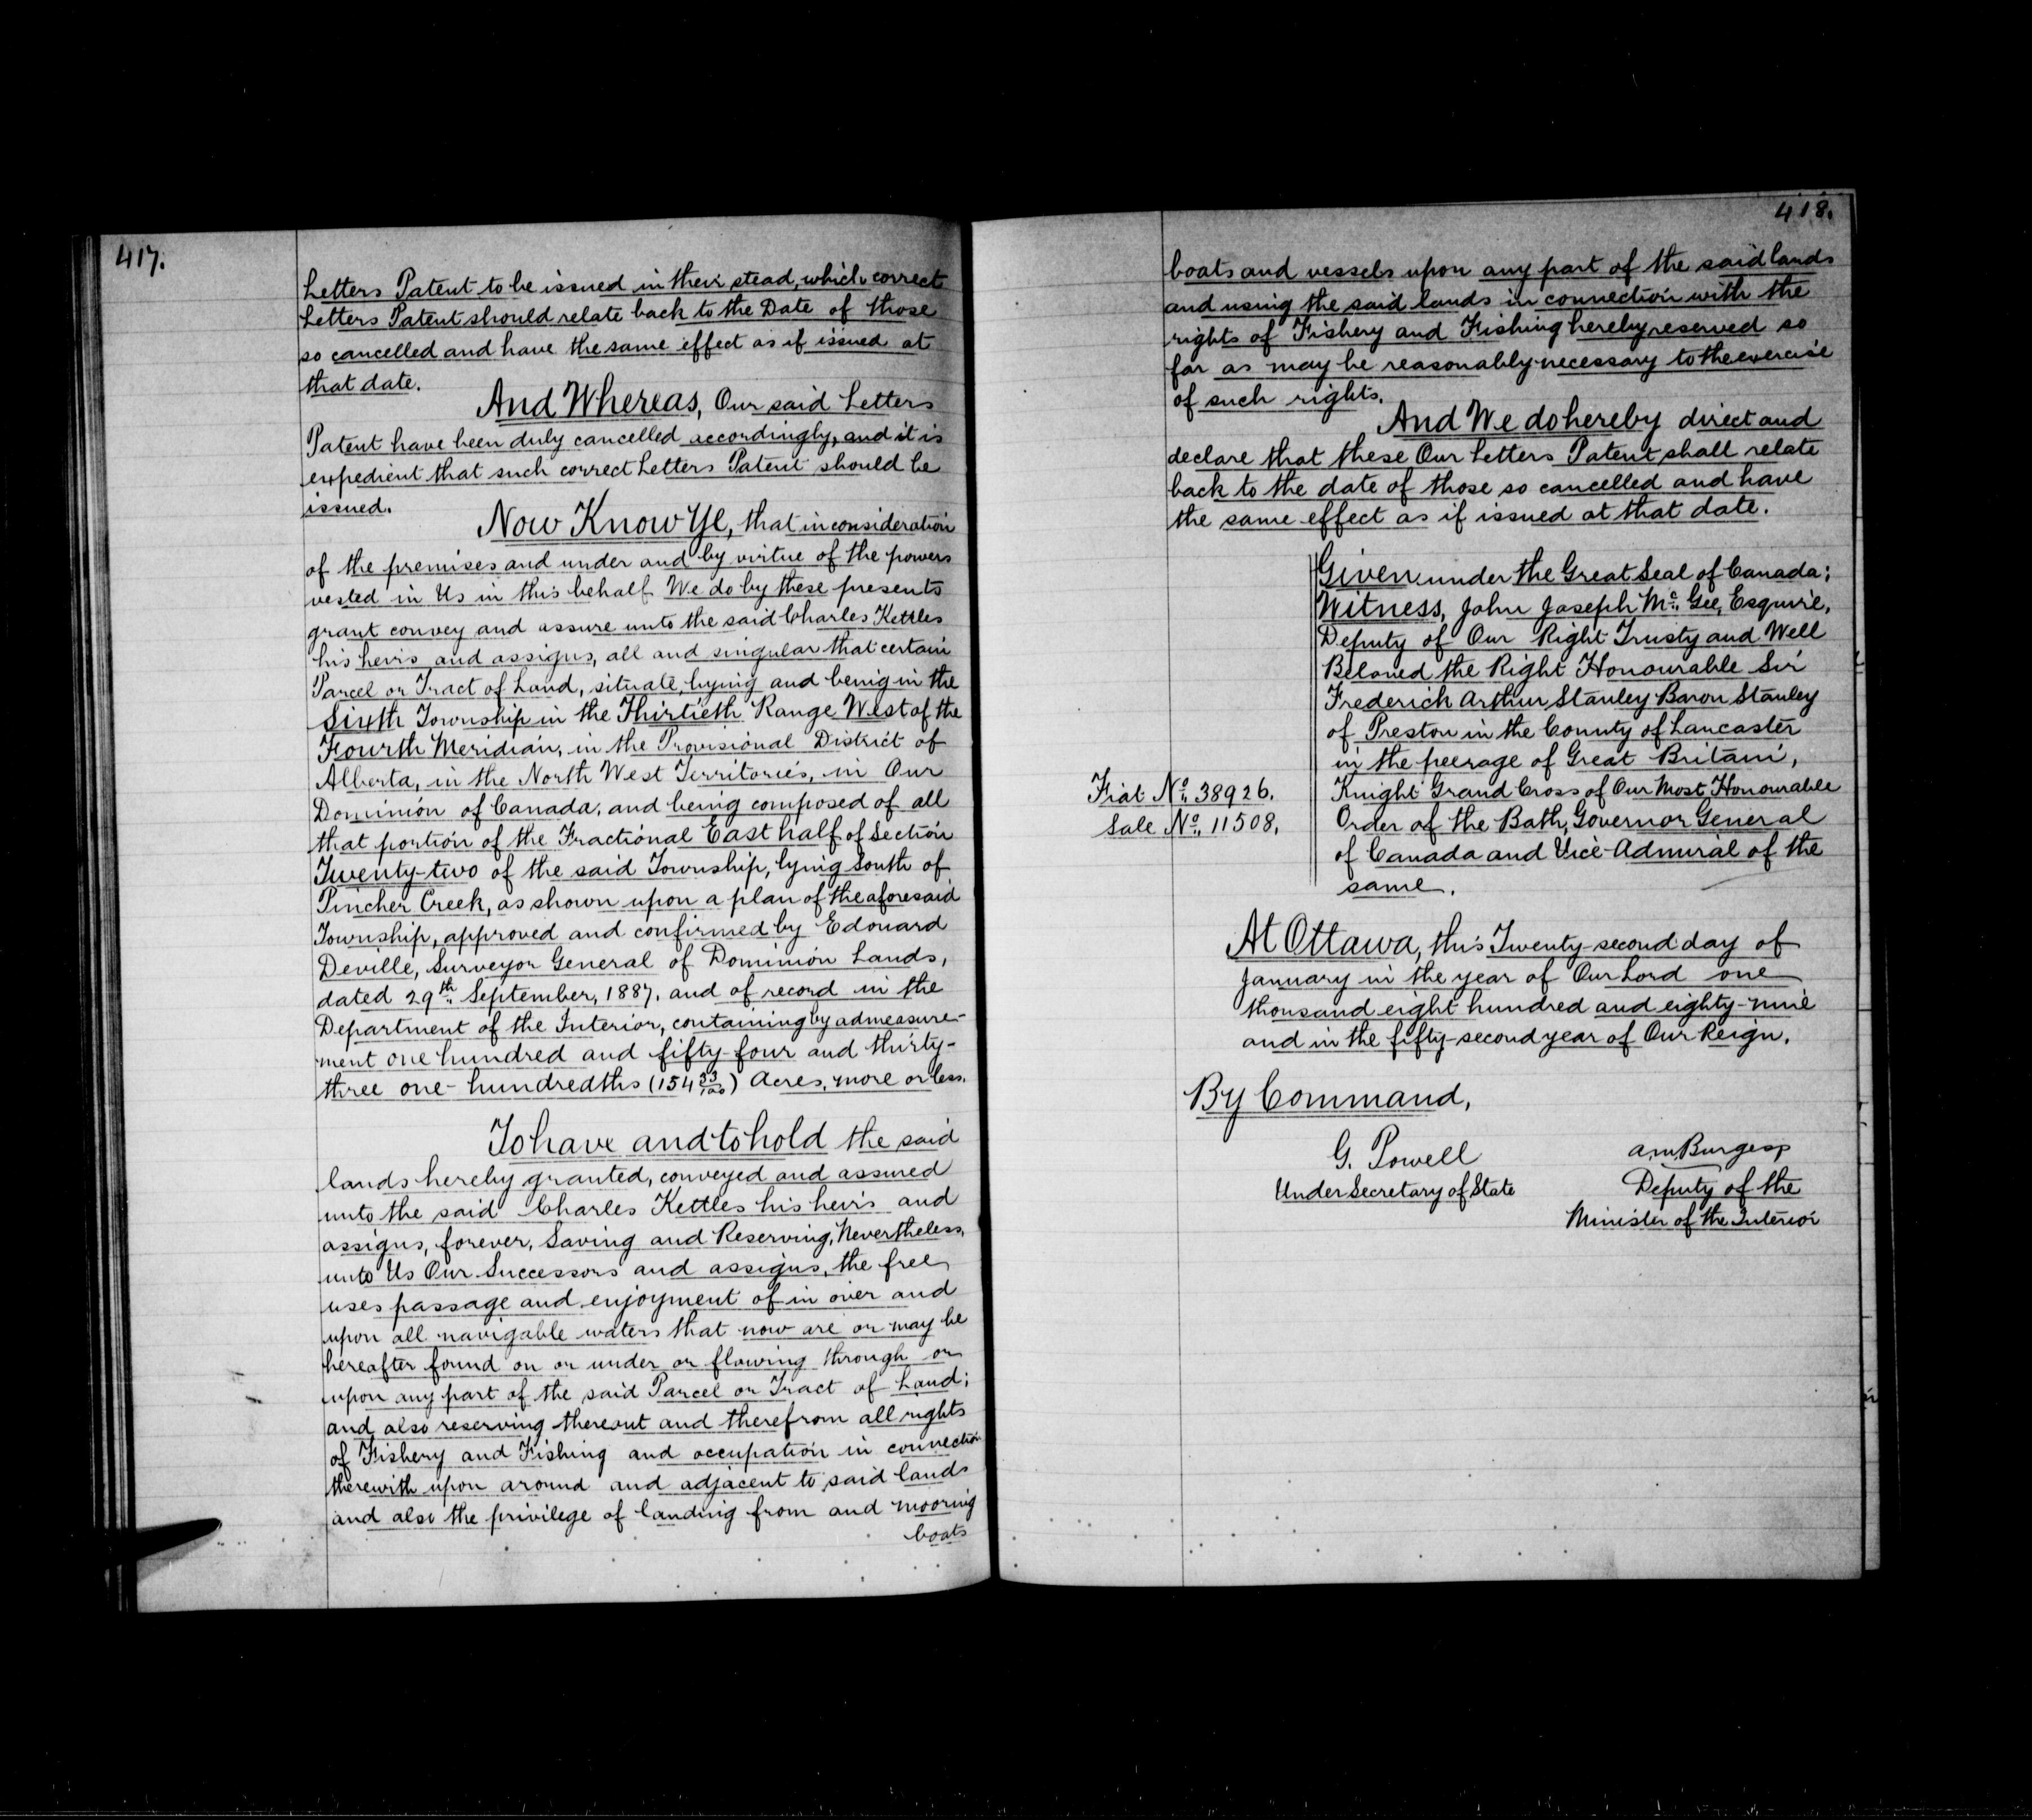 417.
Letters Patent to be issued in their stead, which correct
Letters Patent should relate back to the Date of those
so cancelled and have the same effect as if issued at
that date.
And Whereas, Our said Letters
Patent have been duly cancelled accordingly, and it is
expedient that such correct Letters Patent should be
issued.
Now Know Ye, that in consideration
of the premises and under and by virtue of the powers
vested in Us in this behalf We do by these presents
grant convey and assure unto the said Charles Kettles
his heirs and assigns, all and singular that certain
Parcel or Tract of Land, situate, lying and being in the
Sixth Township in the Thirtieth Range West of the
Fourth Meridian, in the Provisional District of
Alberta, in the North West Territories, in Our
Dominion of Canada, and being composed of all
that portion of the Fractional East half of Section
Twenty-two of the said Township, lying South of
Pincher Creek, as shown upon a plan of the aforesaid
Township, approved and confirmed by Edouard
Deville, Surveyor General of Dominion Lands,
dated 29th September, 1887, and of record in the
Department of the Interior, containing by admeasure-
ment one hundred and fifty-four and thirty-
three one-hundredths (154 33/100) Acres, more or less.
To have and to hold the said
lands hereby granted, conveyed and assured
unto the said Charles Kettles his heirs and
assigns, forever, Saving and Reserving, Nevertheless,
unto Us Our Successors and assigns, the free
uses passage and enjoyment of in over and
upon all navigable waters that now are or may be
hereafter found on or under or flowing through or
upon any part of the said Parcel or Tract of Land;
and also reserving thereout and therefrom all rights
of Fishery and Fishing and occupation in connection
therewith upon around and adjacent to said lands
and also the privilege of landing from and mooring
boats
418.
boats and vessels upon any part of the said lands
and using the said lands in connection with the
rights of Fishery and Fishing hereby reserved so
far as may be reasonably necessary to the exercise
of such rights.
And We do hereby direct and
declare that these Our Letters Patent shall relate
back to the date of those so cancelled and have
the same effect as if issued at that date.
Given under the Great Seal of Canada;
Witness, John Joseph Mc. Gee, Esquire,
Deputy of Our Right Trusty and Well
Beloved the Right Honourable Sir
Frederick Arthur Stanley Baron Stanley
of Preston in the County of Lancaster
in the peerage of Great Britain,
Knight Grand Cross of Our Most Honourable
Order of the Bath, Governor General
of Canada and Vice-Admiral of the
same.
Fiat No. 38926.
Sale No. 11508.
At Ottawa, this Twenty-second day of
January in the year of Our Lord one
thousand eight hundred and eighty-nine
and in the fifty-second year of Our Reign.
By Command,
G. Powell
Under Secretary of State
A.M. Burgess
Deputy of the
Minister of the Interior